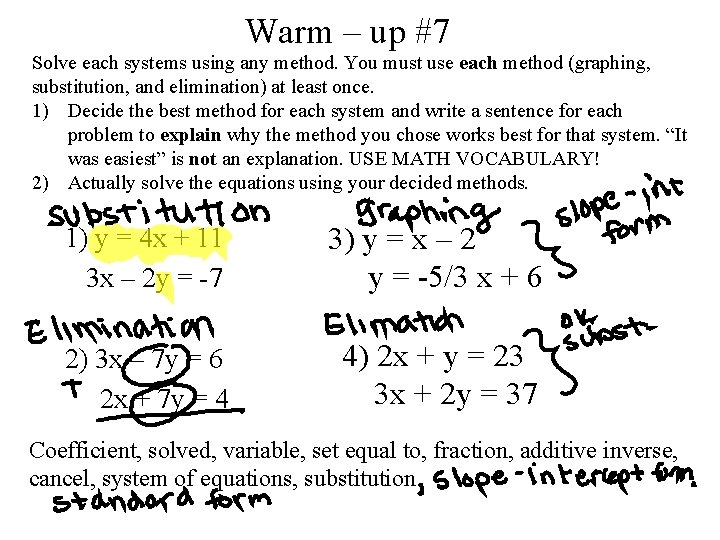 Warm – up #7
Solve each systems using any method. You must use each method (graphing,
substitution, and elimination) at least once.
1) Decide the best method for each system and write a sentence for each
problem to explain why the method you chose works best for that system. “It
was easiest” is not an explanation. USE MATH VOCABULARY!
2) Actually solve the equations using your decided methods.
Substitution
1) y = 4x + 11
3x – 2y = -7
graphing
3) y = x – 2
y = -5/3 x + 6
slope-int
form
Elimination
2) 3x – 7y = 6
+ 2x + 7y = 4
4) 2x + y = 23
3x + 2y = 37
substi
Coefficient, solved, variable, set equal to, fraction, additive inverse,
cancel, system of equations, substitution, slope-intercept form
standard form